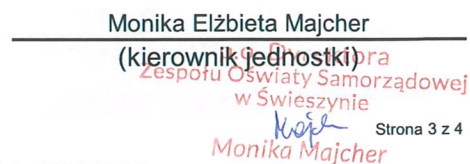 Monika Elżbieta Majcher
(kierownik jednostki)
p.o. Dyrektora
Zespołu Oświaty Samorządowej
w Świeszynie
Strona 3 z 4
Monika Majcher